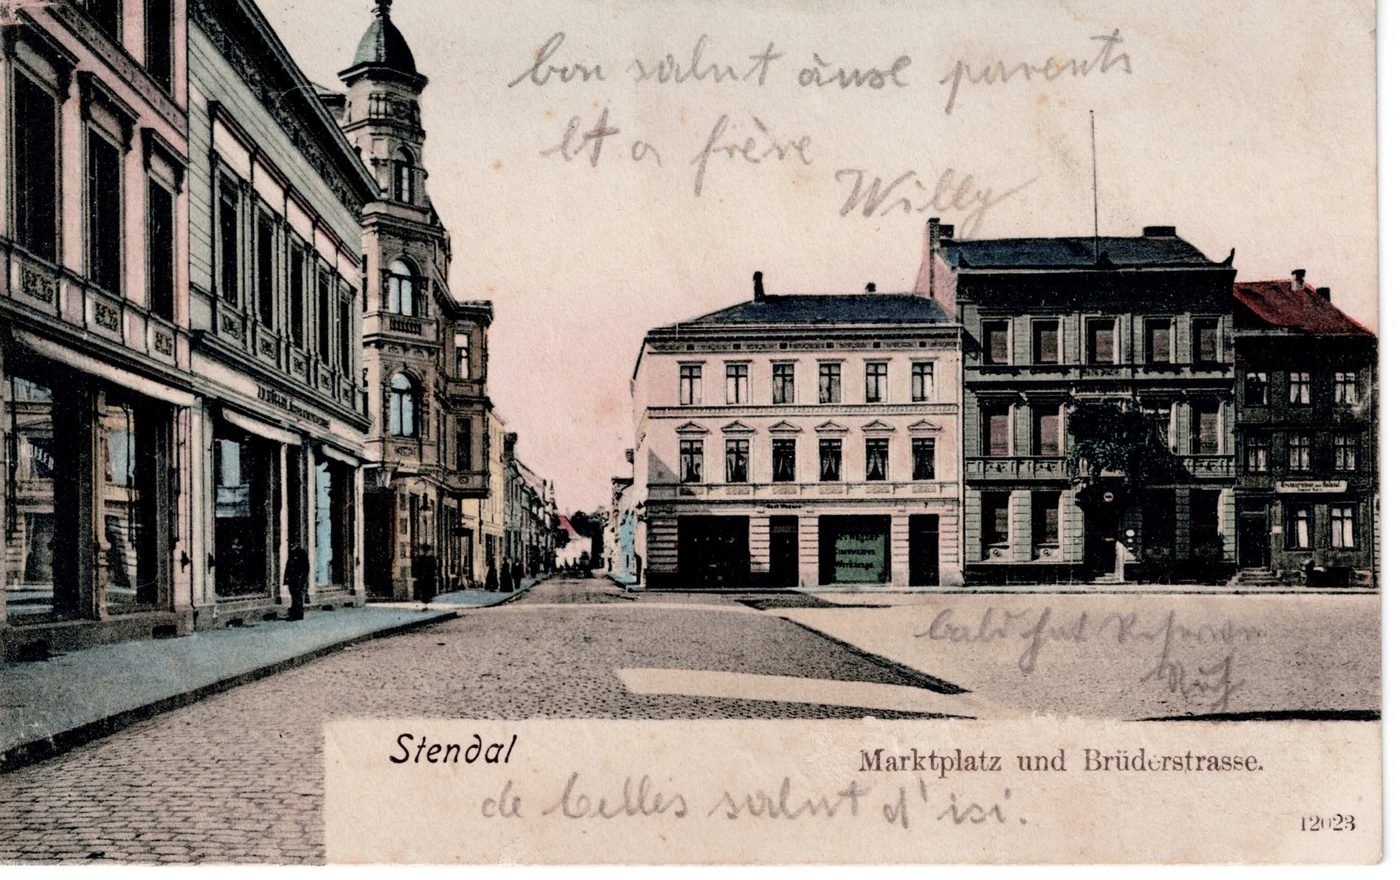 bon salut àuse parents
et a frère
Willy
bald hat Reserve
Ruh
Stendal
Marktplatz und Brüderstrasse.
de belles salut d'isi.
12023